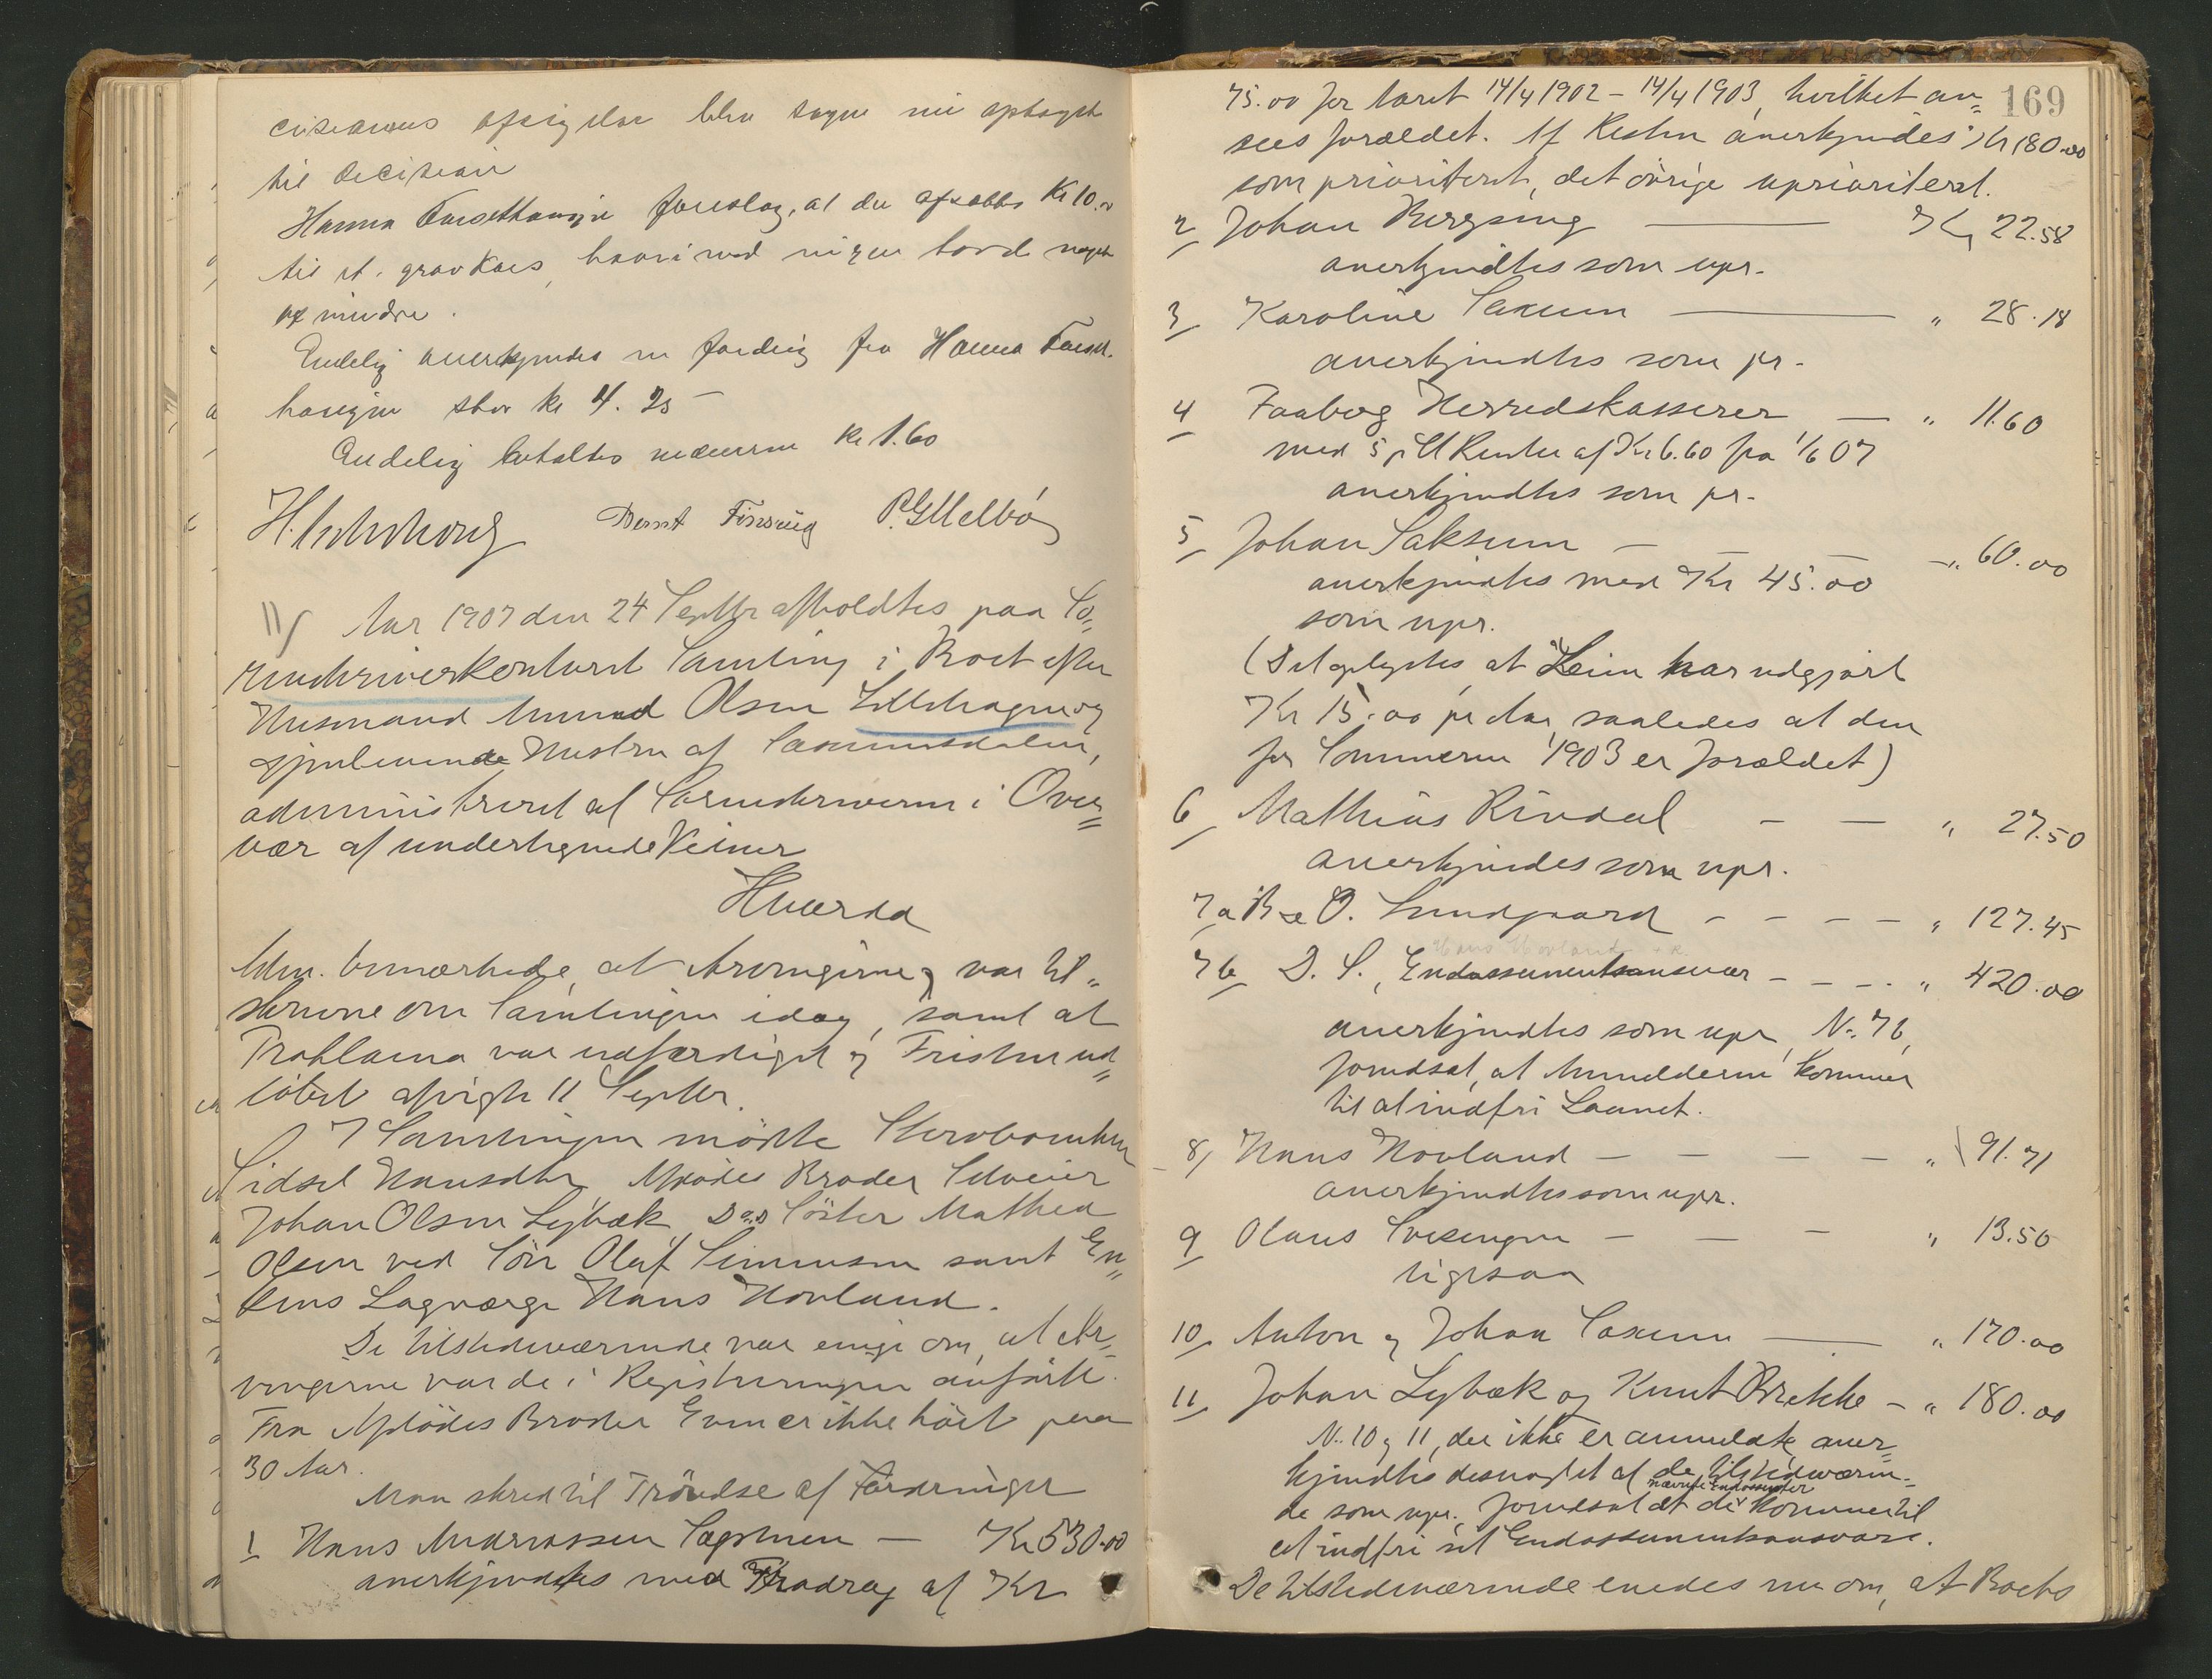 afsigelse blev sagen nu optaget
til decision
Hanna foreslog, at der afsattes Kr 10.00
til et gravkors, hvorimod ingen havde noget
at indvre.
Endelig anerkjendes en fordring fra Hanna
stor kr 4.25
Endelig betaltes vidnerne kr 1.60
Bernt P. G. Melbö
11/ Aar 1907 den 24 Septbr afholdtes paa So-
renskriverkontoret Samling i Boet efter
Husmand Amund Olsen Lillehagen og
gjenlevende Hustru af Saxumsdalen,
administreret af Sorenskriveren i Over-
vær af undertegnede Vidner
Hvorda
Adm. bemærkede, at Arvingerne var til-
skrevne om Samlingen idag, samt at
Proklama var udfærdiget og Fristen ud-
löbet afvigte 11 Septbr.
I Samlingen mödte Sterbboenken
Sidsel Hansdtr Afdödes Broder Selveier
Johan Olsen Lybæk, Do.s Söster Mathea
Olsen ved Sön Oluf Simensen samt En-
kens Lagværge Hans Hovland.
De tilstedeværende var enige om, at Ar-
vingerne var de i Registreringen anförte.
Fra Afdödes Broder Even er ikke hört paa
30 Aar.
Man skred til Prövelse af Fordringer
1 Hans Andreassen Sagstuen — Kr 530.00
anerkjendtes med Fradrag af Kr
169
75.00 for Aaret 14/4 1902 – 14/4 1903, hvilket an-
sees forældet. Af Resten anerkjendes Kr 180.00
som prioriteret, det övrige uprioriteret.
2/ Johan Bergseng — Kr 22.58
anerkjendtes som upr.
3/ Karoline Saxum — " 28.18
anerkjendtes som pr.
4 Faaberg Herredskasserer — " 11.60
med 5 pCt Renter af Kr 6.60 fra 1/6 07
anerkjendtes som pr.
5/ Johan Saksum — — — " 60.00
anerkjendtes med Kr 45.00
som upr.
(Det oplystes at Leien har udgjort
Kr 15.00 pr Aar, saaledes at den
for Sommeren 1903 er forældet)
6/ Mathias Rindal — — " 27.50
anerkjendes som upr.
7a O. Lundgaard — — — — " 127.45
7b D. S., Endossementsansvar — — — " 420.00
anerkjendtes som upr, No 7b,
forudsat, at Anmelderen kommer
til at indfri Laanet.
8/ Hans Hovland — — — — " 91.71
anerkjendtes som upr.
9 Olaus Svesengen — — — " 13.50
ligesaa
10/ Anton og Johan Saxum — " 170.00
11/ Johan Lybæk og Knut Brekke — " 180.00
No. 10 og 11, der ikke er anmeldt, aner-
kjendtes desuagtet af de tilstedeværen-
de som upr. forudsat at de nævnte Endossenter kommer til
at indfri sit Endossementsansvar.
De tilstedeværende enedes nu om, at Boets